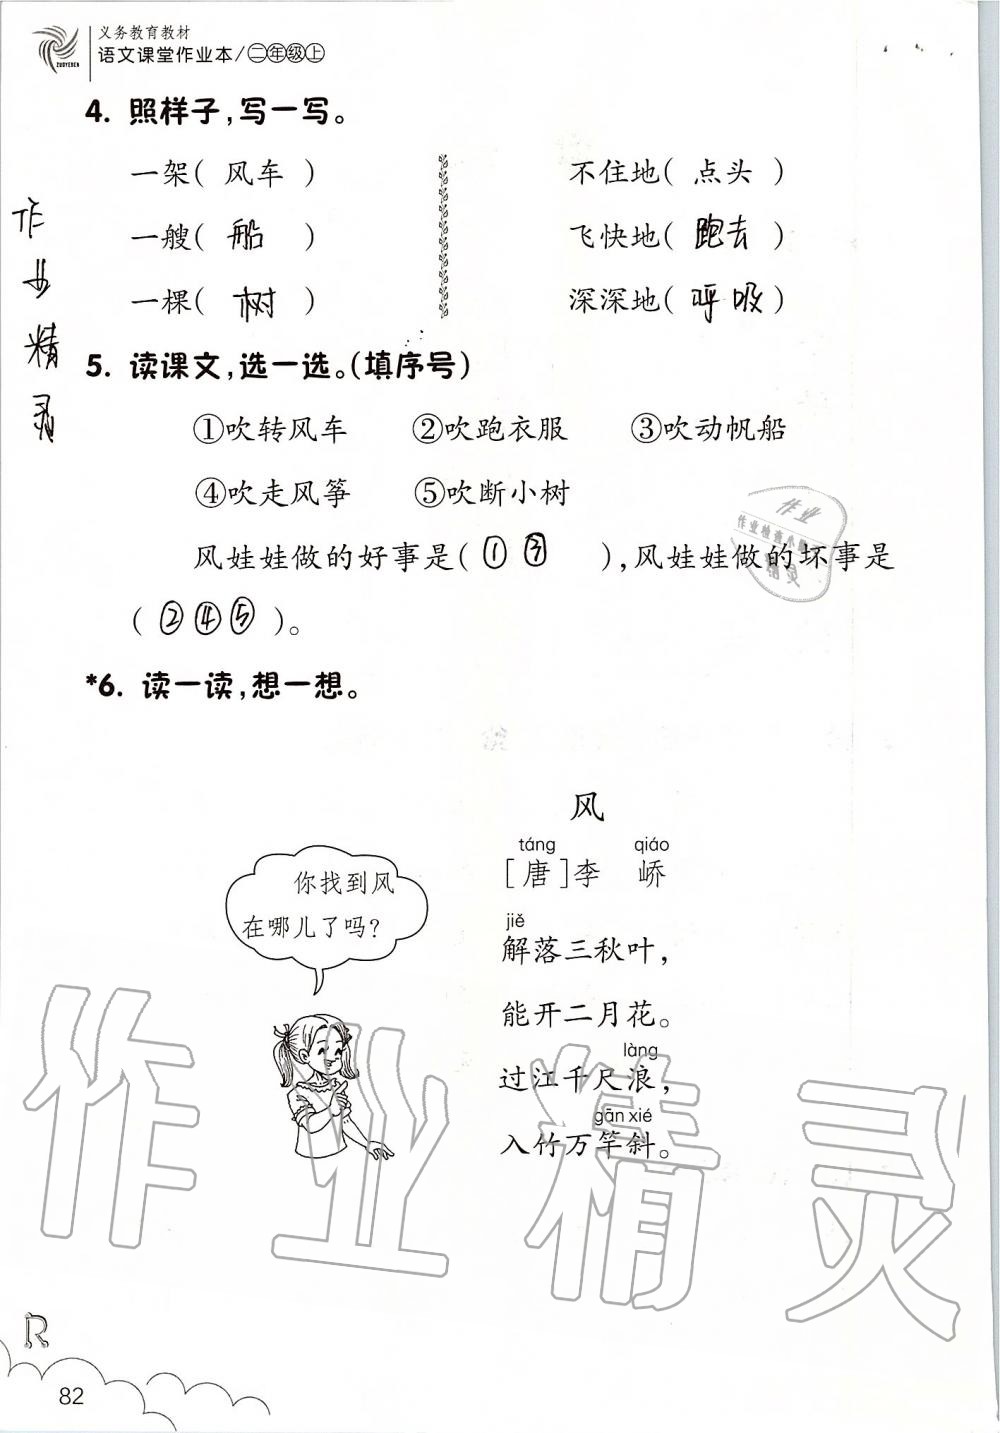 义务教育教材
语文课堂作业本/二年级上
ZUOYEBEN
4. 照样子,写一写。
一架( 风车 ) 不住地( 点头 )
一艘( 船 ) 飞快地( 跑去 )
一棵( 树 ) 深深地( 呼吸 )
作业精灵
5. 读课文,选一选。(填序号)
①吹转风车 ②吹跑衣服 ③吹动帆船
④吹走风筝 ⑤吹断小树
风娃娃做的好事是( ①③ ),风娃娃做的坏事是
( ②④⑤ )。
作业
精灵
*6. 读一读,想一想。
风
táng qiáo
[唐]李 峤
你找到风
在哪儿了吗?
jiě
解落三秋叶,
能开二月花。
làng
过江千尺浪,
gān xié
入竹万竿斜。
作业精灵
R
82